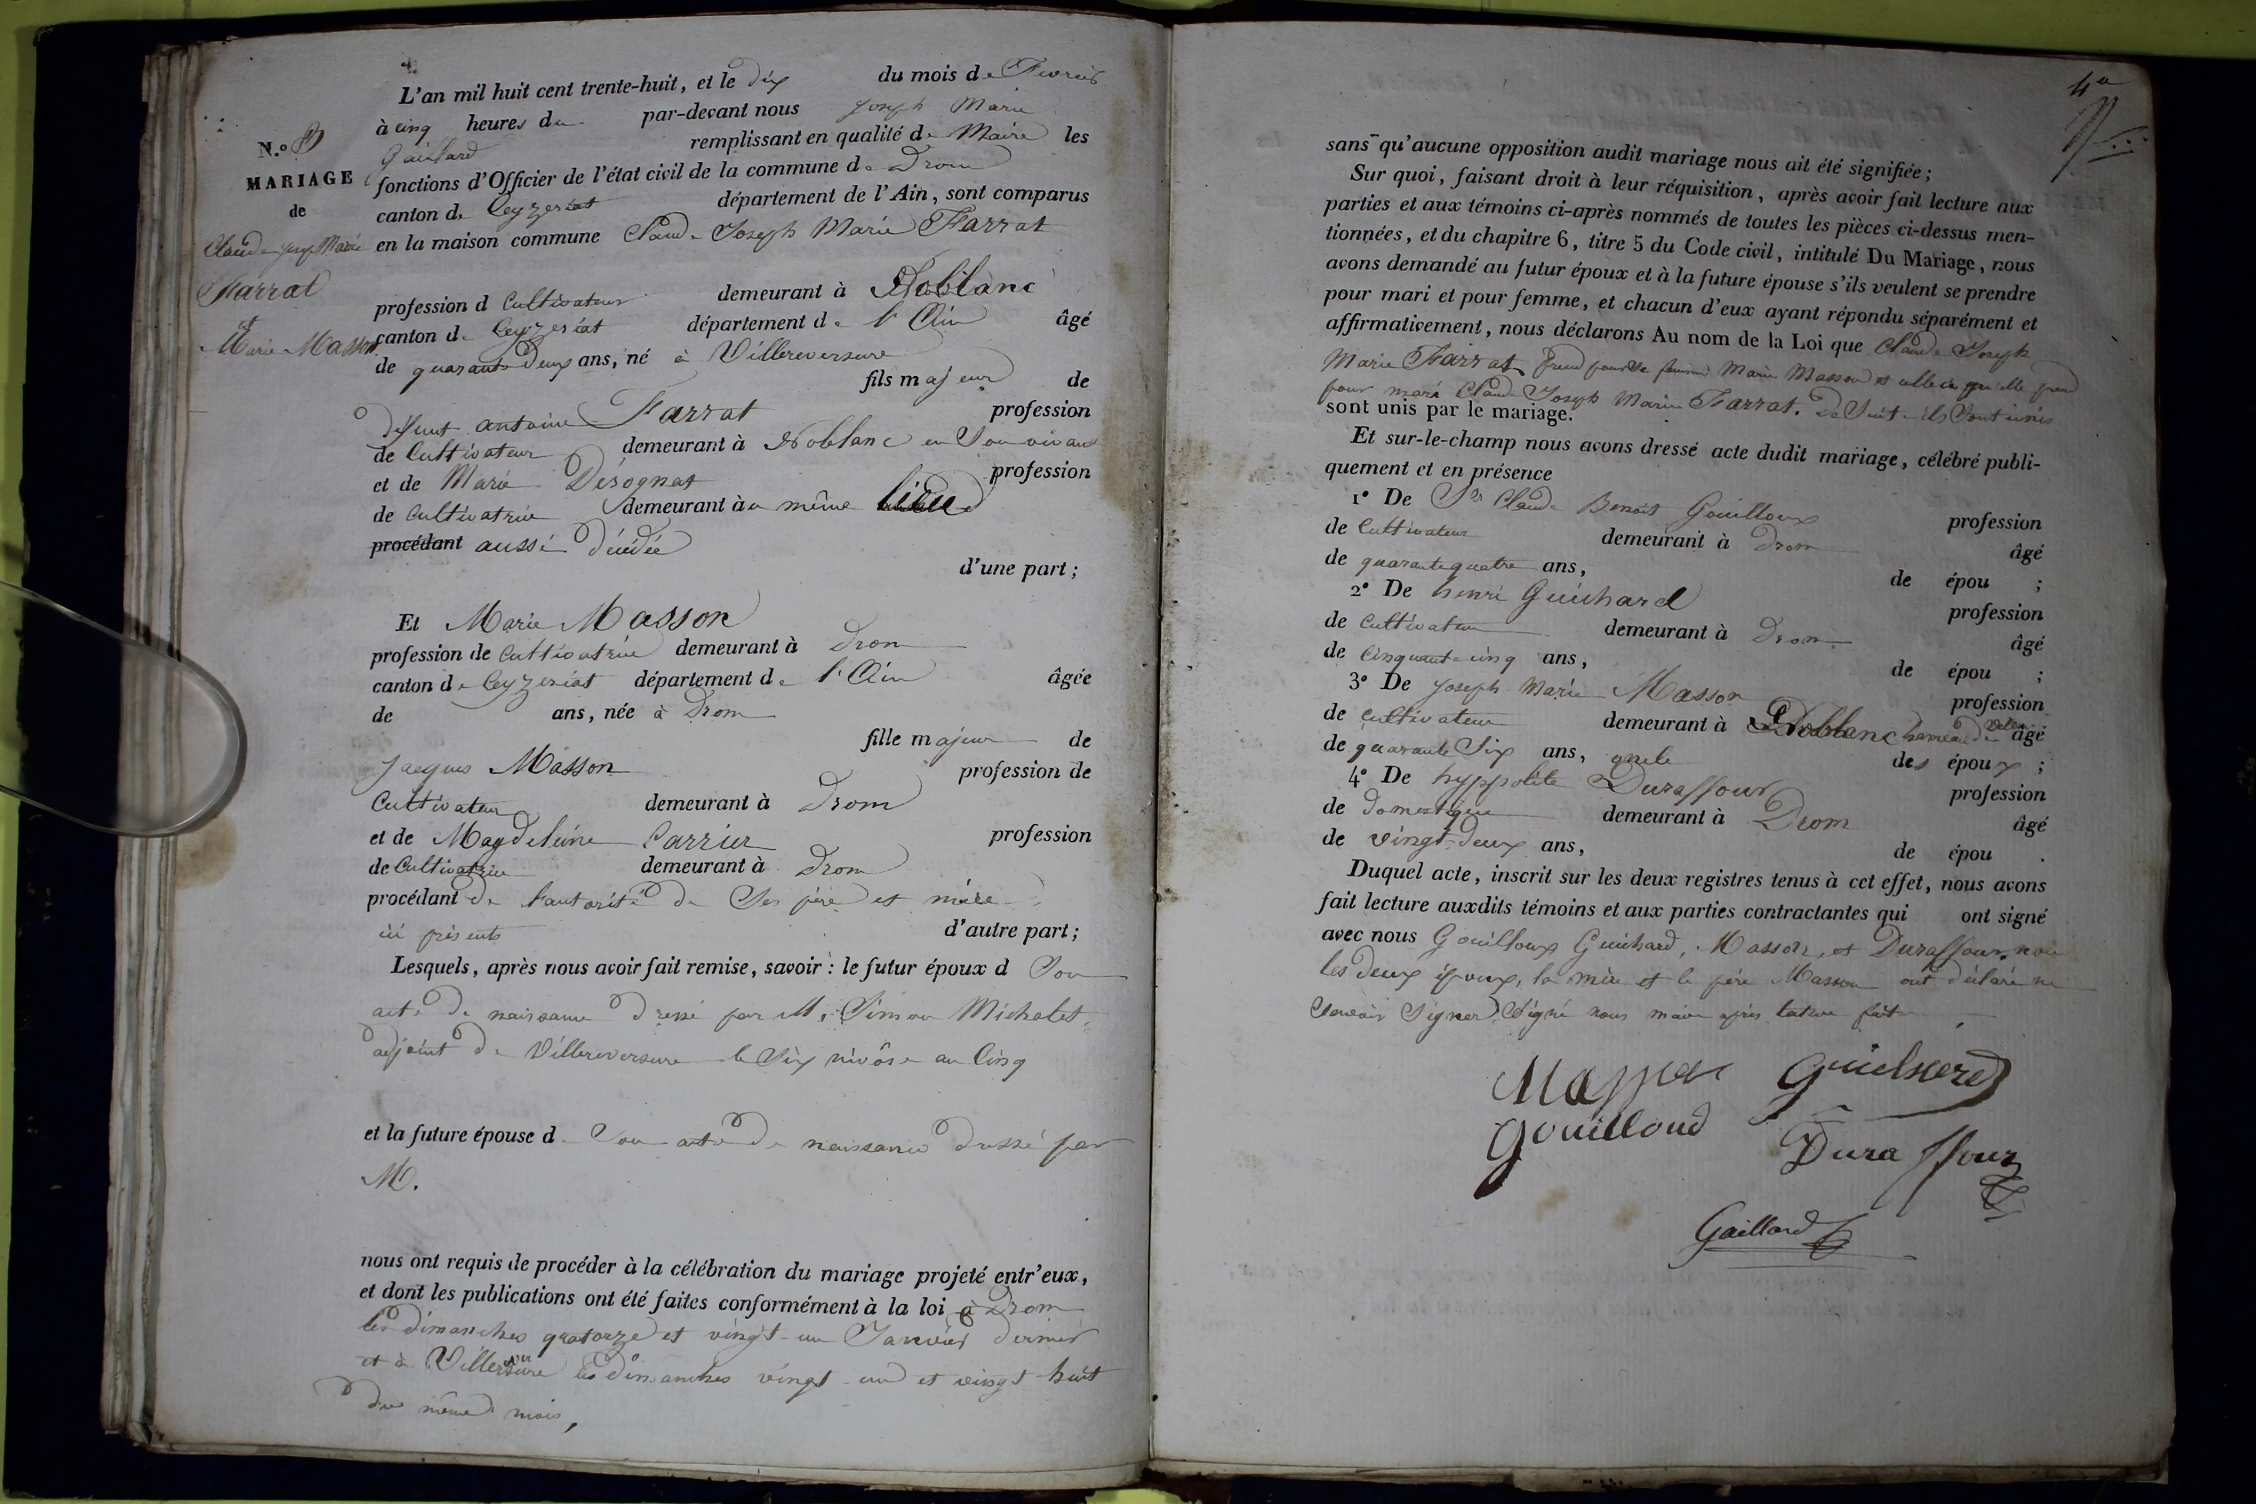 L'an mil huit cent trente-huit, et le dix du mois de Fevrier
à cinq heures du par-devant nous Joseph Marie
Gaillard remplissant en qualité de Maire les
fonctions d'Officier de l'état civil de la commune de Drom
canton de Ceyzeriat département de l'Ain, sont comparus
en la maison commune Claude Joseph Marie Farrat
N.o
MARIAGE
de
Claude Josep Marie
Farrat
et
Marie Masson
profession d Cultivateur demeurant à Noblanc
canton de Ceyzeriat département de l'Ain âgé
de quarante deux ans, né à Villereversure
fils majeur de
défunt antoine Farrat profession
de Cultivateur demeurant à Noblanc en Son vivant
et de Marie Désognat profession
de Cultivatrice demeurant à u même lieu
procédant aussi décédée
d'une part ;
Et Marie Masson
profession de Cultivatrice demeurant à Drom
canton de Ceyzeriat département de l'Ain âgée
de ans, née à Drom
fille majeure de
Jacques Masson profession de
Cultivateur demeurant à Drom
et de Magdeleine Carrier profession
de Cultivatrice demeurant à Drom
procédant de l'autorité de Ses père et mère
ici présents d'autre part ;
Lesquels, après nous avoir fait remise, savoir : le futur époux d Son
acte de naissance dressé par M. Simon Michalet
adjoint de Villereversure le Six nivôse an Cinq
et la future épouse de Son acte de naissance dressé par
M.
nous ont requis de procéder à la célébration du mariage projeté entr'eux,
et dont les publications ont été faites conformément à la loi à Drom
les dimanches quatorze et vingt-un Janvier dernier
et à Villereversure les dimanches vingt-un et vingt-huit
du même mois,
4a
sans qu'aucune opposition audit mariage nous ait été signifiée ;
Sur quoi, faisant droit à leur réquisition, après avoir fait lecture aux
parties et aux témoins ci-après nommés de toutes les pièces ci-dessus men-
tionnées, et du chapitre 6, titre 5 du Code civil, intitulé Du Mariage, nous
avons demandé au futur époux et à la future épouse s'ils veulent se prendre
pour mari et pour femme, et chacun d'eux ayant répondu séparément et
affirmativement, nous déclarons Au nom de la Loi que Claude Joseph
Marie Farrat prend pour Sa femme Marie Masson et celle ci qu'elle prend
pour mari Claude Joseph Marie Farrat. De Suite ils Sont unis
sont unis par le mariage.
Et sur-le-champ nous avons dressé acte dudit mariage, célébré publi-
quement et en présence
1° De Sr Claude Benoit Gouilloux profession
de Cultivateur demeurant à Drom âgé
de quarante quatre ans, de épou ;
2° De henri Guichard profession
de Cultivateur demeurant à Drom âgé
de Cinquante cinq ans, de épou ;
3° De Joseph Marie Masson profession
de cultivateur demeurant à Noblanc hameau de âgé
de quarante Six ans, oncle des époux ;
4° De hyppolite Duraffour profession
de domestique demeurant à Drom âgé
de vingt-deux ans, de épou .
Duquel acte, inscrit sur les deux registres tenus à cet effet, nous avons
fait lecture auxdits témoins et aux parties contractantes qui ont signé
avec nous Gouilloux Guichard, Masson, et Duraffour, non
les deux époux, la mère et le père Masson ont déclaré ne
Savoir Signer Signé nous maire après lecture faite
Masson Guichard
Gouilloud
Duraffour
Gaillard